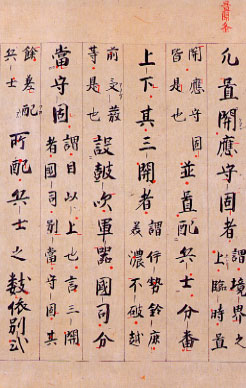 置關条
凡置關應守固者謂境界之上臨時置
關應守固皆是也並置配兵士分番
上下其三關者謂伊勢鈴鹿美濃不破越
前愛發等是也設鼓吹軍器國司分
當守固謂目以上也言三關者國司別當守固其
餘差配兵士所配兵士之數依別式